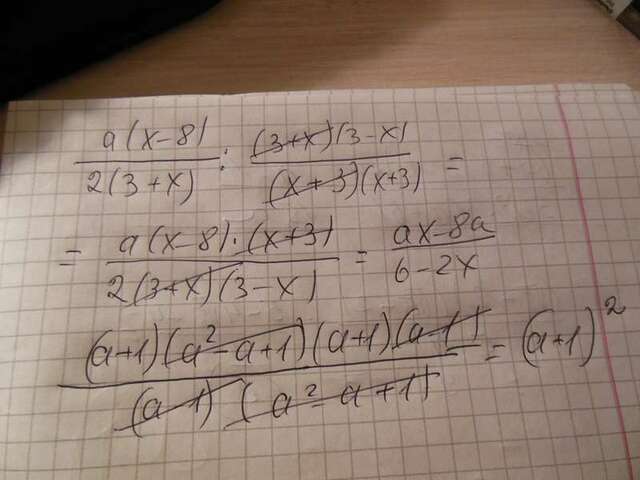 a(x-8)/2(3+x) : (3+x)(3-x)/(x+3)(x+3) =
= a(x-8)·(x+3)/2(3+x)(3-x) = ax-8a/6-2x
(a+1)(a²-a+1)(a+1)(a-1)/(a-1)(a²-a+1) = (a+1)²